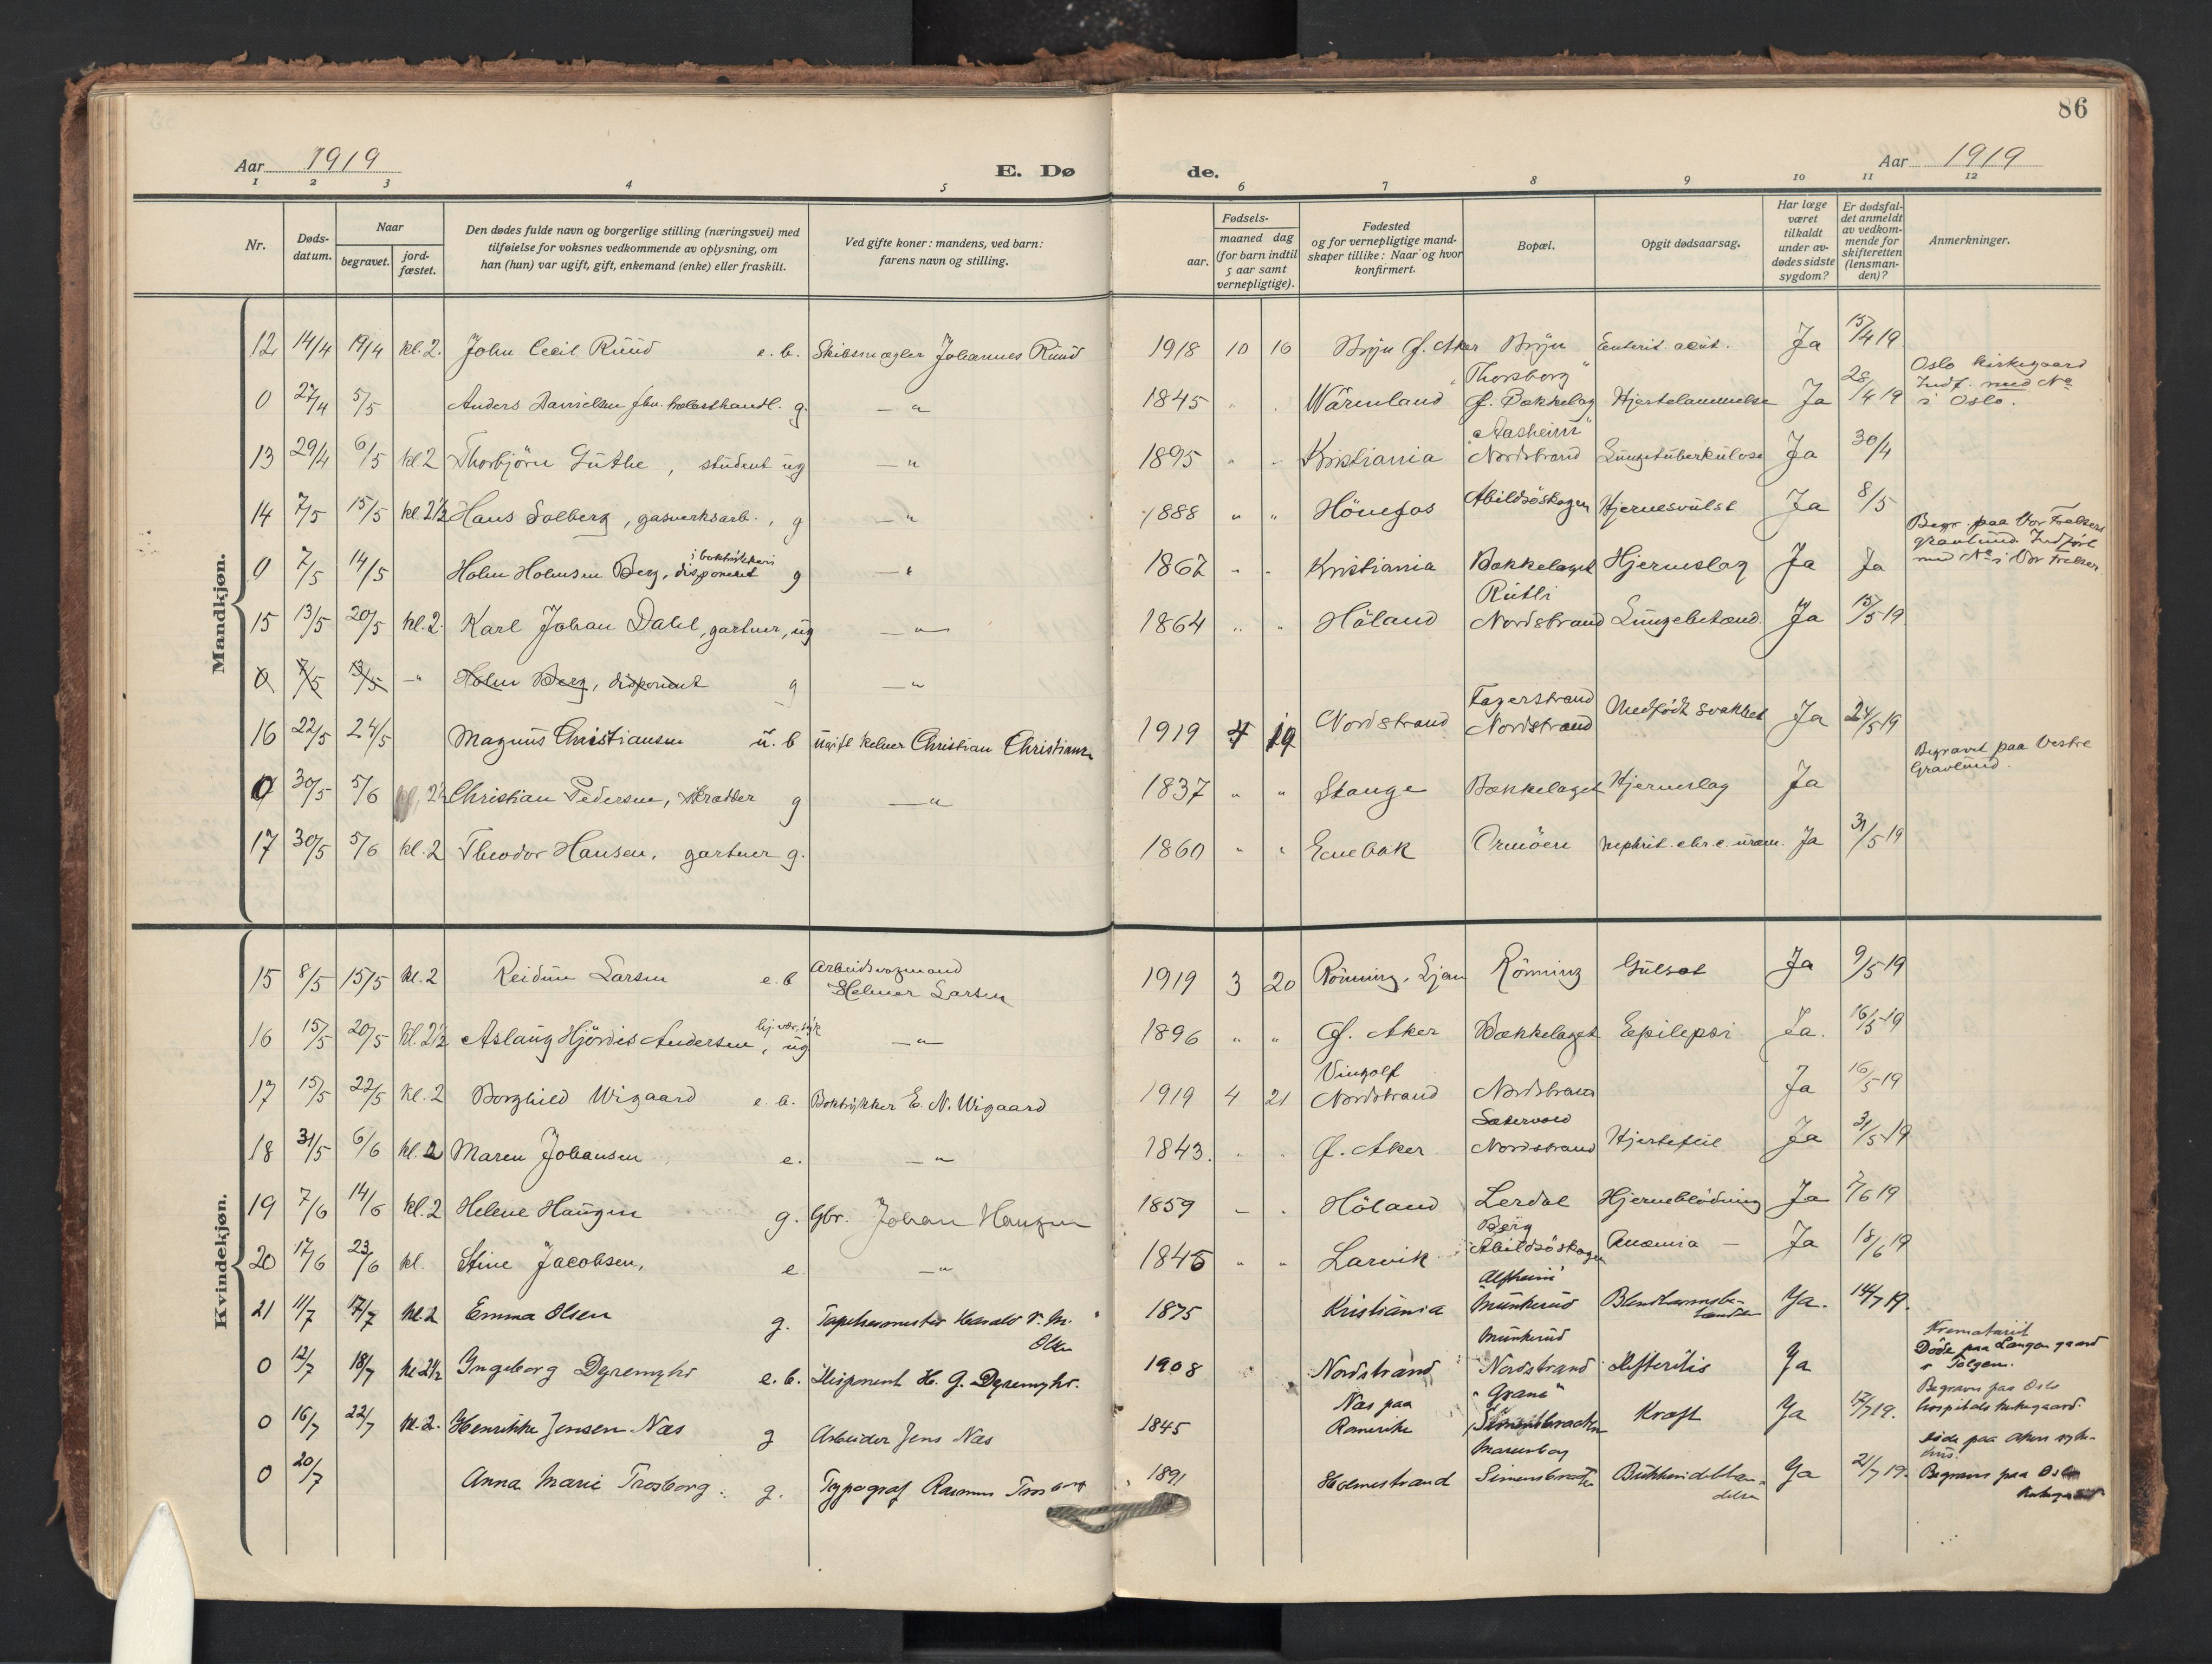 86
Aar 1919 E. Dø de. Aar 1919
1 2 3 4 5 6 7 8 9 10 11 12
Nr.
Døds-
datum.
Naar
begravet.
jord-
fæstet.
Den dødes fulde navn og borgerlige stilling (næringsvei) med
tilføielse for voksnes vedkommende av oplysning, om
han (hun) var ugift, gift, enkemand (enke) eller fraskilt.
Ved gifte koner: mandens, ved barn:
farens navn og stilling.
Fødsels-
aar.
maaned dag
(for barn indtil
5 aar samt
vernepligtige).
Fødested
og for vernepligtige mand-
skaper tillike: Naar og hvor
konfirmert.
Bopæl.
Opgit dødsaarsag.
Har læge
været
tilkaldt
under av-
dødes sidste
sygdom?
Er dødsfal-
det anmeldt
av vedkom-
mende for
skifteretten
(lensman-
den)?
Anmerkninger.
Mandkjøn.
12 14/4 19/4 kl. 2. John Cecil Ruud e. b. Skibsmægler Johannes Ruud 1918 10 16 Bryn Ø. Aker Bryn Enterit. acut. Ja 15/4 19
0 27/4 5/5 Anders Danielsen fhv. g. — " 1845 " " Wärmland "Thorsborg" Ø. Bækkelag Hjertelammelse Ja 28/4 19 Oslo kirkegaard
Indf. med No
i Oslo.
13 29/4 6/5 kl 2 Thorbjörn Guthe, student ug — " 1895 " " Kristiania "Aasheim" Nordstrand Lungetuberkulose Ja 30/4
14 7/5 15/5 kl. 2 1/2 Hans Solberg, gasverksarb., g — " 1888 " " Hönefos Abildsöskogen Hjernesvulst Ja 8/5
0 7/5 14/5 Holm Holmsen Berg, disponent i boktrykkeri g — " 1862 " " Kristiania Bækkelaget Hjerneslag Ja Ja Begr. paa Vor Frelsers
gravlund. Indført
med No i Vor Frelser.
15 13/5 20/5 kl. 2. Karl Johan Dahl, gartner, ug — " — 1864 " " Höland Rütli Nordstrand Lungebetænd. Ja 15/5 19
0 7/5 13/5 — " Holm Berg, disponent g — " —
16 22/5 24/5 Magnus Christiansen u. b ugift kelner Christian Christiansen 1919 4 19 Nordstrand Fagerstrand Nordstrand Medfödt svakhet Ja 24/5 19
0 30/5 5/6 kl, 2 1/2 Christian Pedersen, skrædder g — " — 1837 " " Stange Bækkelaget Hjerneslag Ja Begravet paa Vestre
Gravlund.
17 30/5 5/6 kl. 2 Theodor Hansen, gartner g. 1860 " " Enebak Ormöen Nephrit. chr. c. uræm. Ja 31/5 19
Kvindekjøn.
15 8/5 15/5 kl. 2 Reidun Larsen e. b Arbeidsvogmand
Helmer Larsen 1919 3 20 Rönning, Ljan Rönning Gulsot Ja 9/5 19
16 15/5 20/5 kl. 2 1/2 Aslaug Hjördis Andersen, ug — " — 1896 " " Ø. Aker Bækkelaget Epilepsi Ja. 16/5 19
17 15/5 22/5 kl. 2 Borghild Wigaard e. b. Boktrykker E. N. Wigaard 1919 4 21 Vingolf Nordstrand Nordstrand Ja 16/5 19
18 31/5 6/6 kl. 2 Maren Johansen e. — " 1843. " " Ø. Aker Nordstrand Hjertefeil Ja 31/5 19
19 7/6 14/6 kl. 2 Helene Haugen g. Gbr. Johan Haugen 1859 " " Höland Lerdal Hjerneblödning Ja 7/6 19
20 17/6 23/6 kl. Stine Jacobsen, e — " 1845 " " Larvik Berg Abildsöskogen Anæmia — Ja 18/6 19
21 11/7 17/7 kl. 2 Emma Olsen g. Tapetsermester Harald V. M.
Olsen 1875 Kristiania Alfheim Munkerud Blindtarmsbe-
tændelse Ja. 14/7 19.
0 12/7 18/7 kl 2 1/2 Ingeborg Dyremyhr e. b. Disponent H. G. Dyremyhr. 1908 Nordstrand Munkerud Nordstrand Difteritis Ja Krematoriet
Döde paa Langøn gaard
i Tolgen.
0 16/7 22/7 kl. 2. Henrikke Jensen Næs g Arbeider Jens Næs 1845 Nes paa Romerike "Grane" Simensbraaten Kræft Ja 17/7 19. Begraves paa Oslo
hospitals kirkegaard.
0 20/7 Anna Marie Trosborg g. Typograf Rasmus Trosborg 1891 Holmestrand Marienborg Simensbraaten Ja 21/7 19. Döde paa Akers syke-
hus.
Begraves paa Oslo
kirkegaard